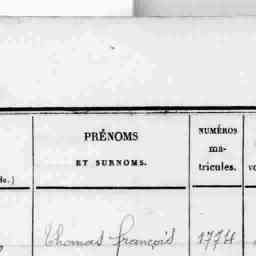 PRÉNOMS
ET SURNOMS.
NUMÉROS
ma-
tricules.
Thomas françois 1774